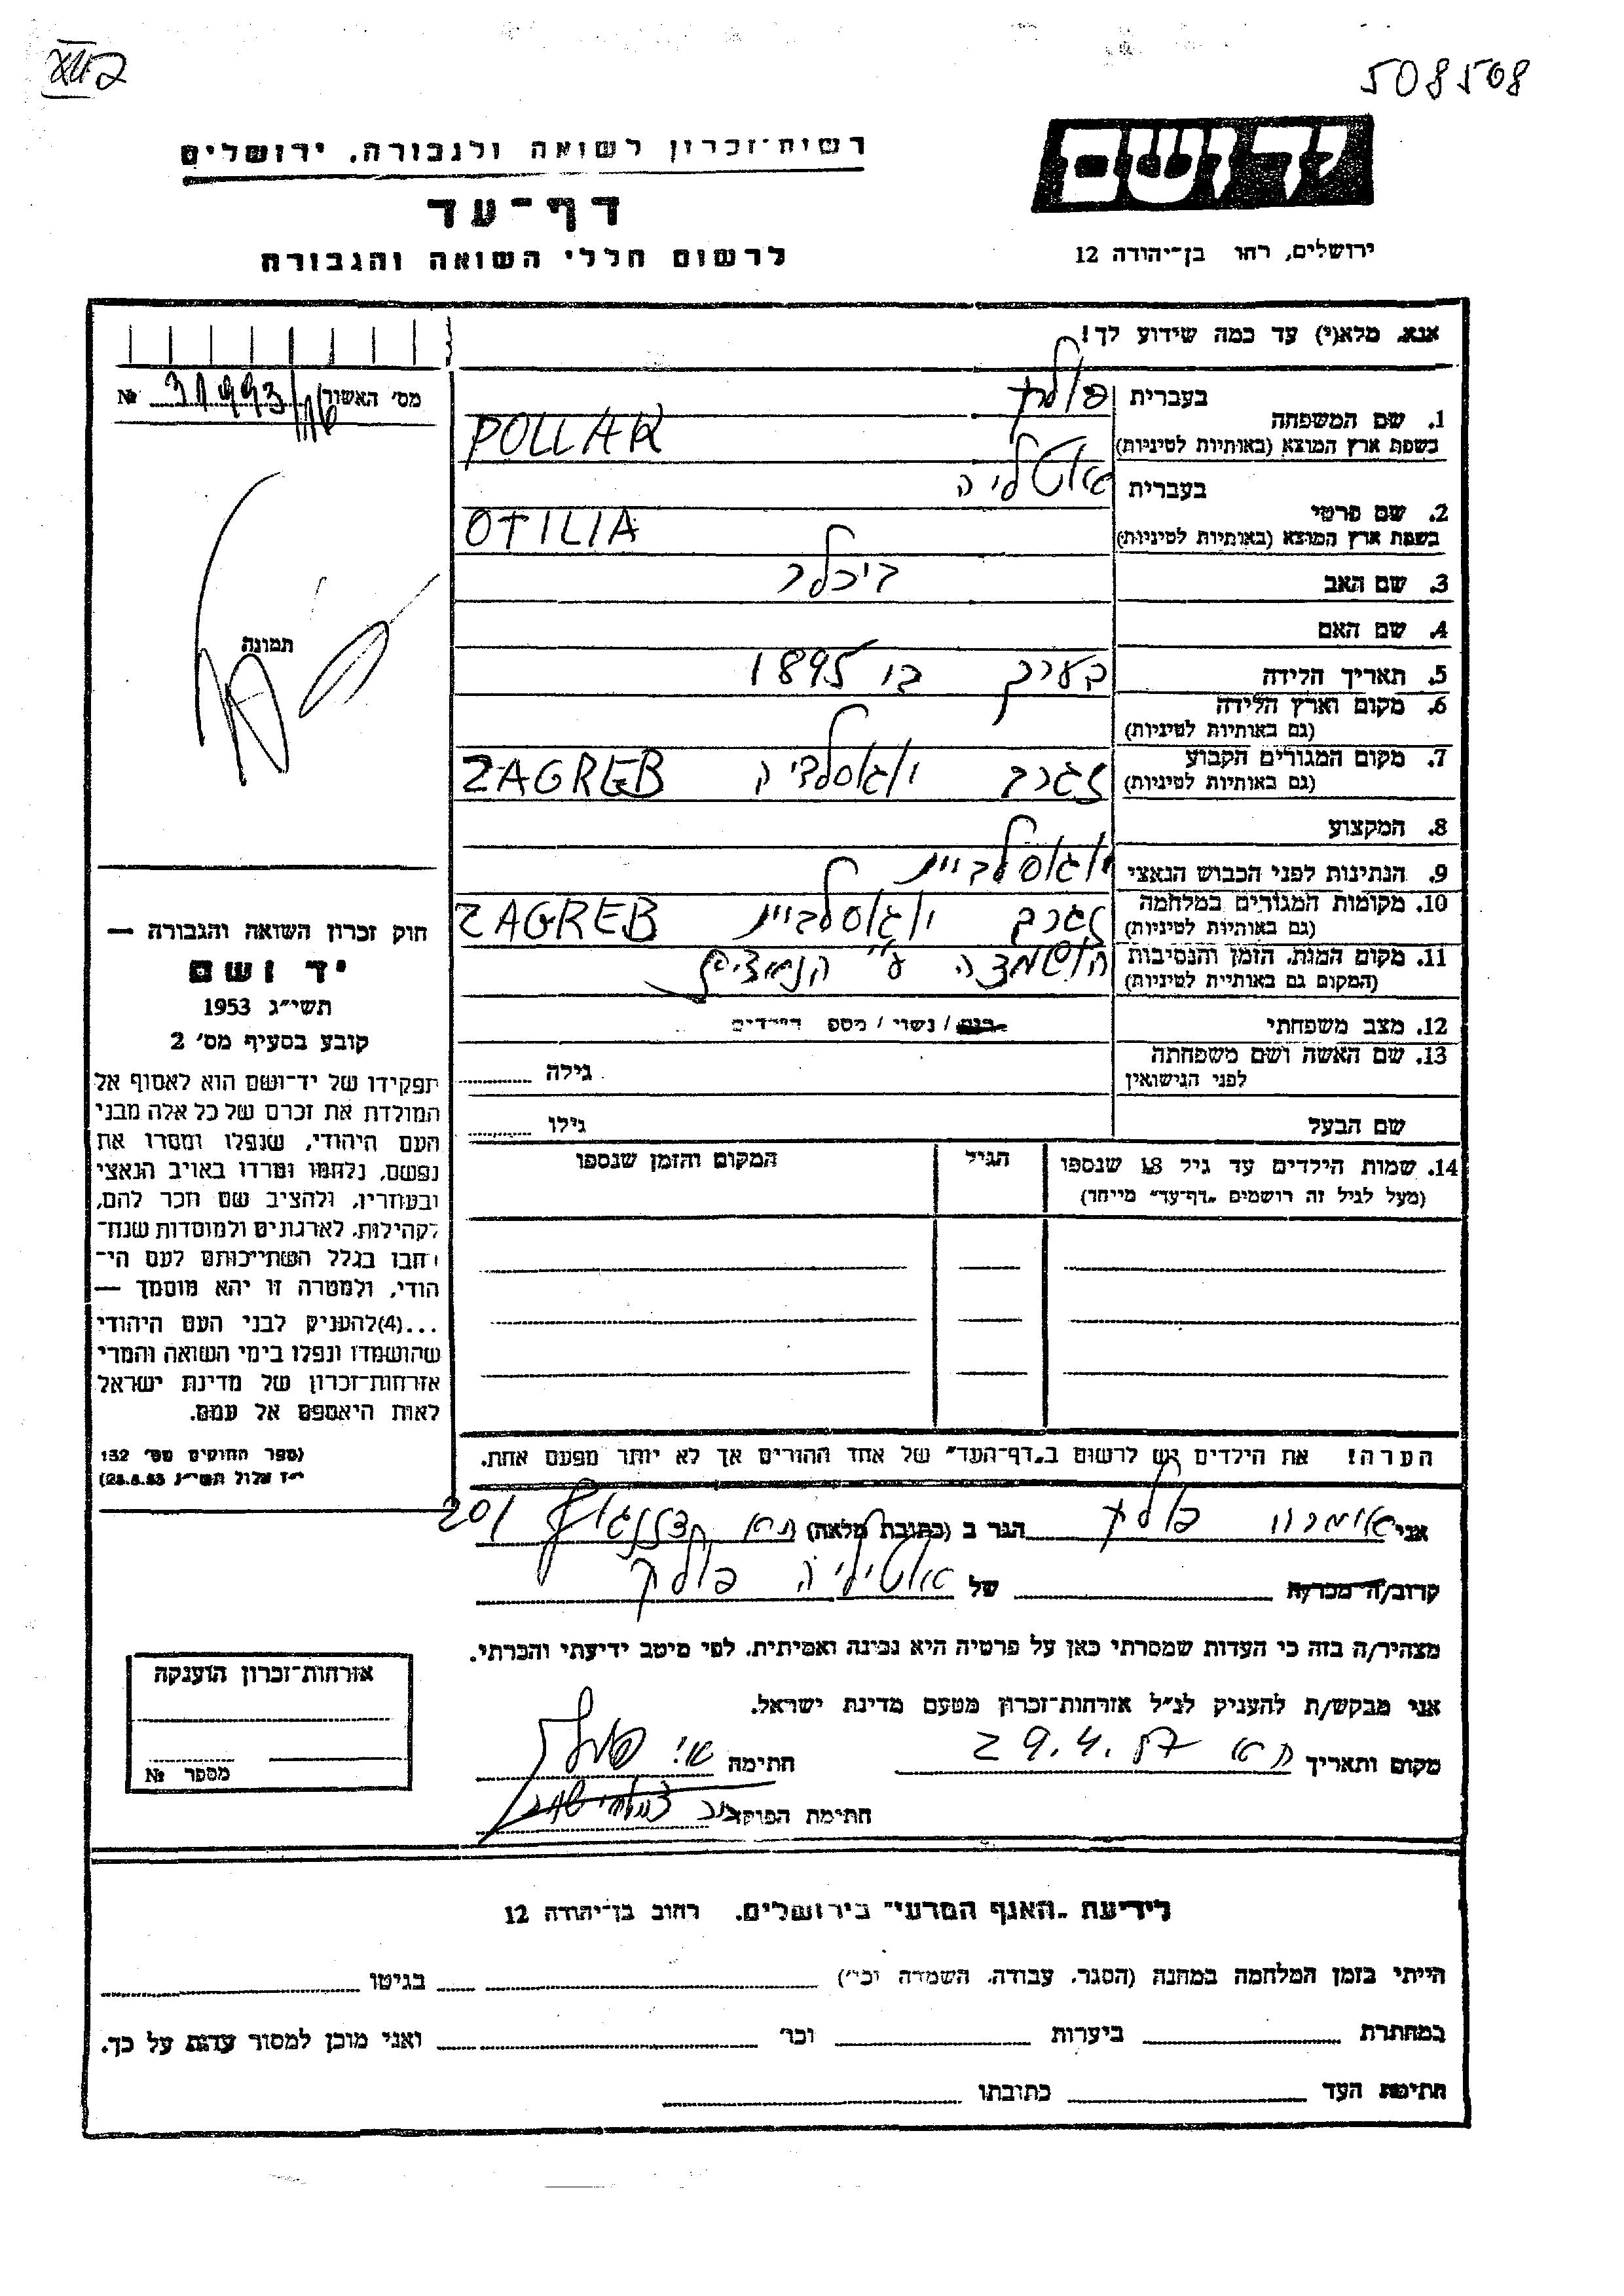 508508
יד ושם
רשות-זכרון לשואה ולגבורה, ירושלים
דף-עד
לרשום חללי השואה והגבורה
ירושלים, רחו בן-יהודה 12
אנא, מלא(י) עד כמה שידוע לך!
מס' האשור № 31993
1. שם המשפחה
בעברית פולק
בשפת ארץ המוצא (באותיות לטיניות) POLLAK
2. שם פרטי
בעברית אוטליה
בשפת ארץ המוצא (באותיות לטיניות) OTILIA
3. שם האב
4. שם האם
5. תאריך הלידה בערך 1895
6. מקום וארץ הלידה
(גם באותיות לטיניות)
7. מקום המגורים הקבוע זגרב יוגוסלביה ZAGREB
(גם באותיות לטיניות)
8. המקצוע
9. הנתינות לפני הכבוש הנאצי יוגוסלבית
10. מקומות המגורים במלחמה זגרב יוגוסלבית ZAGREB
(גם באותיות לטיניות)
11. מקום המות, הזמן והנסיבות הושמדה ע"י הנאצים
(המקום גם באותיות לטיניות)
12. מצב משפחתי / נשוי / מספ הילדים
13. שם האשה ושם משפחתה גילה
לפני הנישואין
שם הבעל גילו
14. שמות הילדים עד גיל 18 שנספו הגיל המקום והזמן שנספו
(מעל לגיל זה רושמים "דף-עד" מייחד)
הערה! את הילדים יש לרשום ב"דף-העד" של אחד ההורים אך לא יותר מפעם אחת.
תמונה
חוק זכרון השואה והגבורה —
יד ושם
תשי"ג 1953
קובע בסעיף מס' 2
תפקידו של יד-ושם הוא לאסוף אל
המולדת את זכרם של כל אלה מבני
העם היהודי, שנפלו ומסרו את
נפשם, נלחמו ומרדו באויב הנאצי
ובעוזריו, ולהציב שם וזכר להם,
לקהילות, לארגונים ולמוסדות שנח-
רבו בגלל השתייכותם לעם הי-
הודי, ולמטרה זו יהא מוסמך —
...(4)להעניק לבני העם היהודי
שהושמדו ונפלו בימי השואה והמרי
אזרחות-זכרון של מדינת ישראל
לאות היאספם אל עמם.
(ספר החוקים מס' 132
י"ז אלול תשי"ג 28.8.53)
אני פולק הגר ב (כתובת מלאה) תא דיזנגוף 201
קרוב/ה מכר/ה של אוטיליה פולק
מצהיר/ה בזה כי העדות שמסרתי כאן על פרטיה היא נכונה ואמיתית, לפי מיטב ידיעתי והכרתי.
אני מבקש/ת להעניק לנ"ל אזרחות-זכרון מטעם מדינת ישראל.
מקום ותאריך תא 29.4.57 חתימה
חתימת הפוקד
אזרחות-זכרון הוענקה
מספר №
לידיעת "האגף המדעי" בירושלים, רחוב בן-יהודה 12
הייתי בזמן המלחמה במחנה (הסגר, עבודה, השמדה וכו') בגיטו
במחתרת ביערות וכו' ואני מוכן למסור עדות על כך.
חתימת העד כתובתו